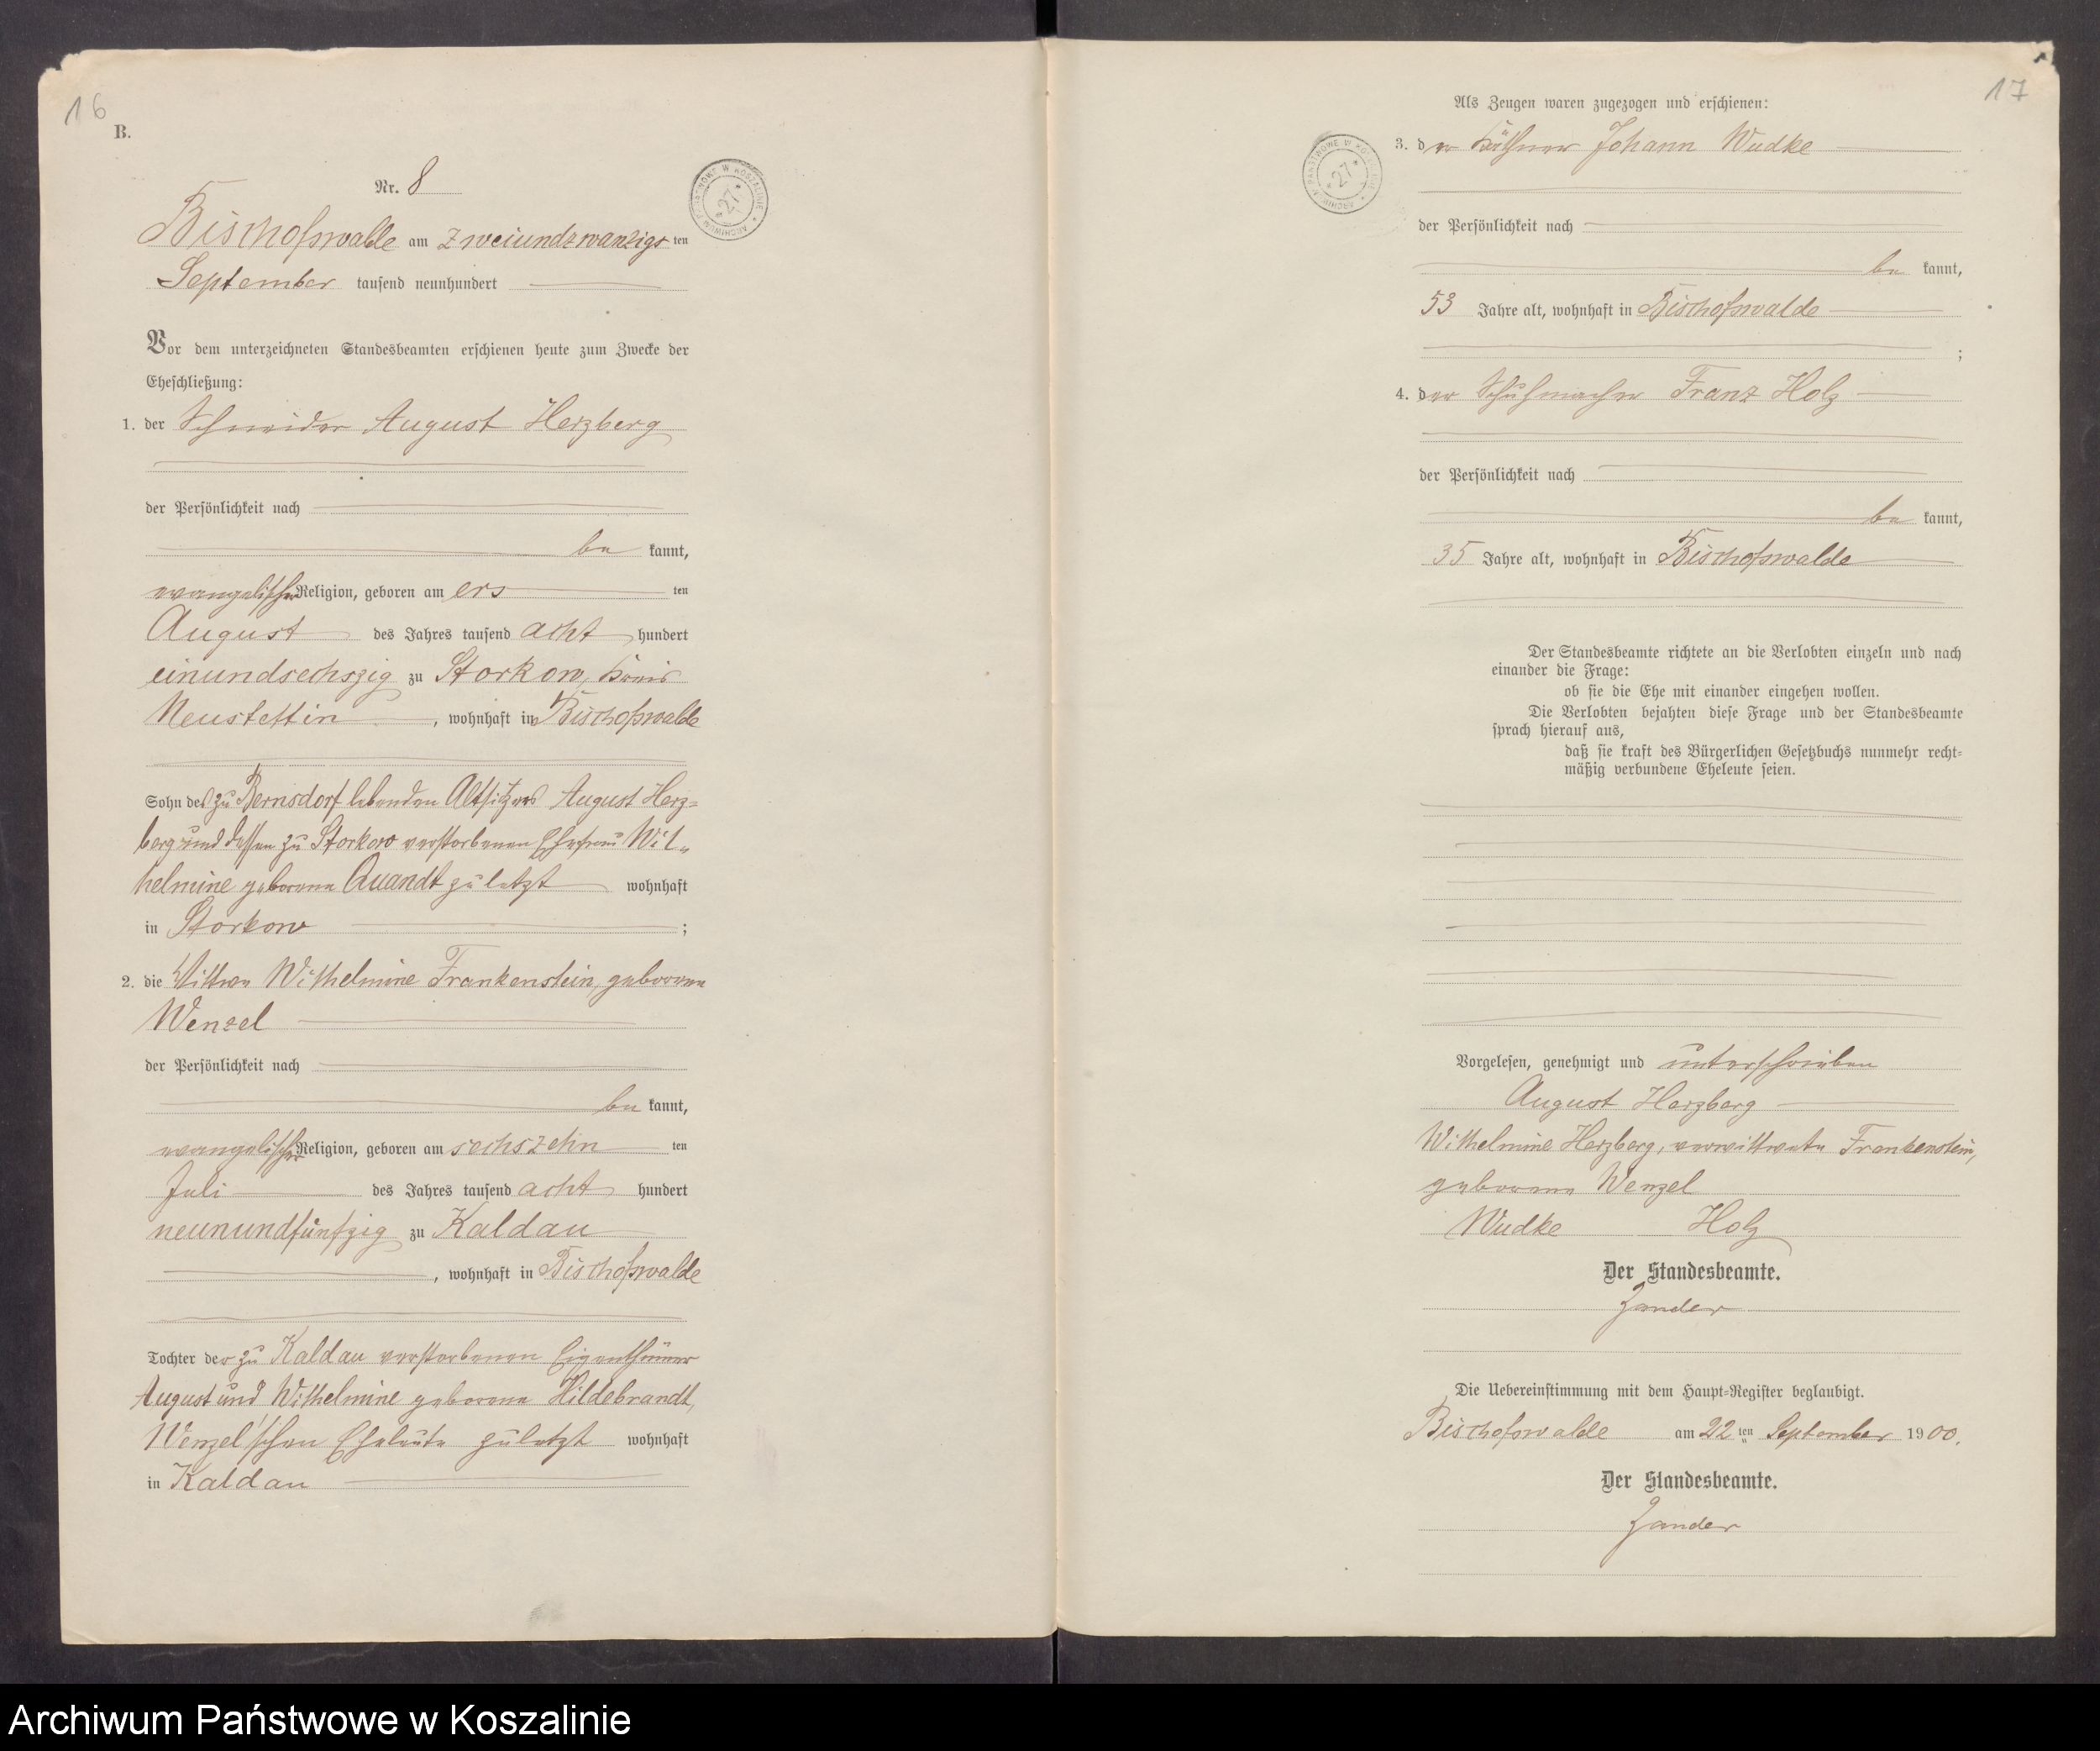 16
B.
Nr. 8
Bischofswalde am zweiundzwanzigs ten
September tausend neunhundert
Vor dem unterzeichneten Standesbeamten erschienen heute zum Zwecke der
Eheschließung:
1. der Schneider August Herzberg
der Persönlichkeit nach
be kannt,
evangelischer Religion, geboren am ers ten
August des Jahres tausend acht hundert
einundsechszig zu Storkow, Kreis
Neustettin, wohnhaft in Bischofswalde
Sohn des zu Bernsdorf lebenden Altsitzers August Herz=
berg und dessen zu Storkow verstorbenen Ehefrau Wil„
helmine geborene Quandt zuletzt wohnhaft
in Storkow ;
2. die Wittwe Wilhelmine Frankenstein, geborene
Wenzel
der Persönlichkeit nach
be kannt,
evangelischer Religion, geboren am sechszehn ten
Juli des Jahres tausend acht hundert
neunundfünfzig zu Kaldau
, wohnhaft in Bischofswalde
Tochter der zu Kaldau verstorbenen Eigenthümer
August und Wilhelmine geborene Hildebrandt,
Wenzel'schen Eheleute zuletzt wohnhaft
in Kaldau
ARCHIWUM PAŃSTWOWE W KOSZALINIE
*27*
17
Als Zeugen waren zugezogen und erschienen:
ARCHIWUM PAŃSTWOWE W KOSZALINIE
*27*
3. der Käthner Johann Wudke
der Persönlichkeit nach
be kannt,
53 Jahre alt, wohnhaft in Bischofswalde
;
4. der Schuhmacher Franz Holz
der Persönlichkeit nach
be kannt,
35 Jahre alt, wohnhaft in Bischofswalde
Der Standesbeamte richtete an die Verlobten einzeln und nach
einander die Frage:
ob sie die Ehe mit einander eingehen wollen.
Die Verlobten bejahten diese Frage und der Standesbeamte
sprach hierauf aus,
daß sie kraft des Bürgerlichen Gesetzbuchs nunmehr recht=
mäßig verbundene Eheleute seien.
Vorgelesen, genehmigt und unterschrieben
August Herzberg
Wilhelmine Herzberg, verwittwete Frankenstein,
geborene Wenzel
Wudke Holz
Der Standesbeamte.
Zander
Die Uebereinstimmung mit dem Haupt=Register beglaubigt.
Bischofswalde am 22 ten September 1900.
Der Standesbeamte.
Zander
Archiwum Państwowe w Koszalinie